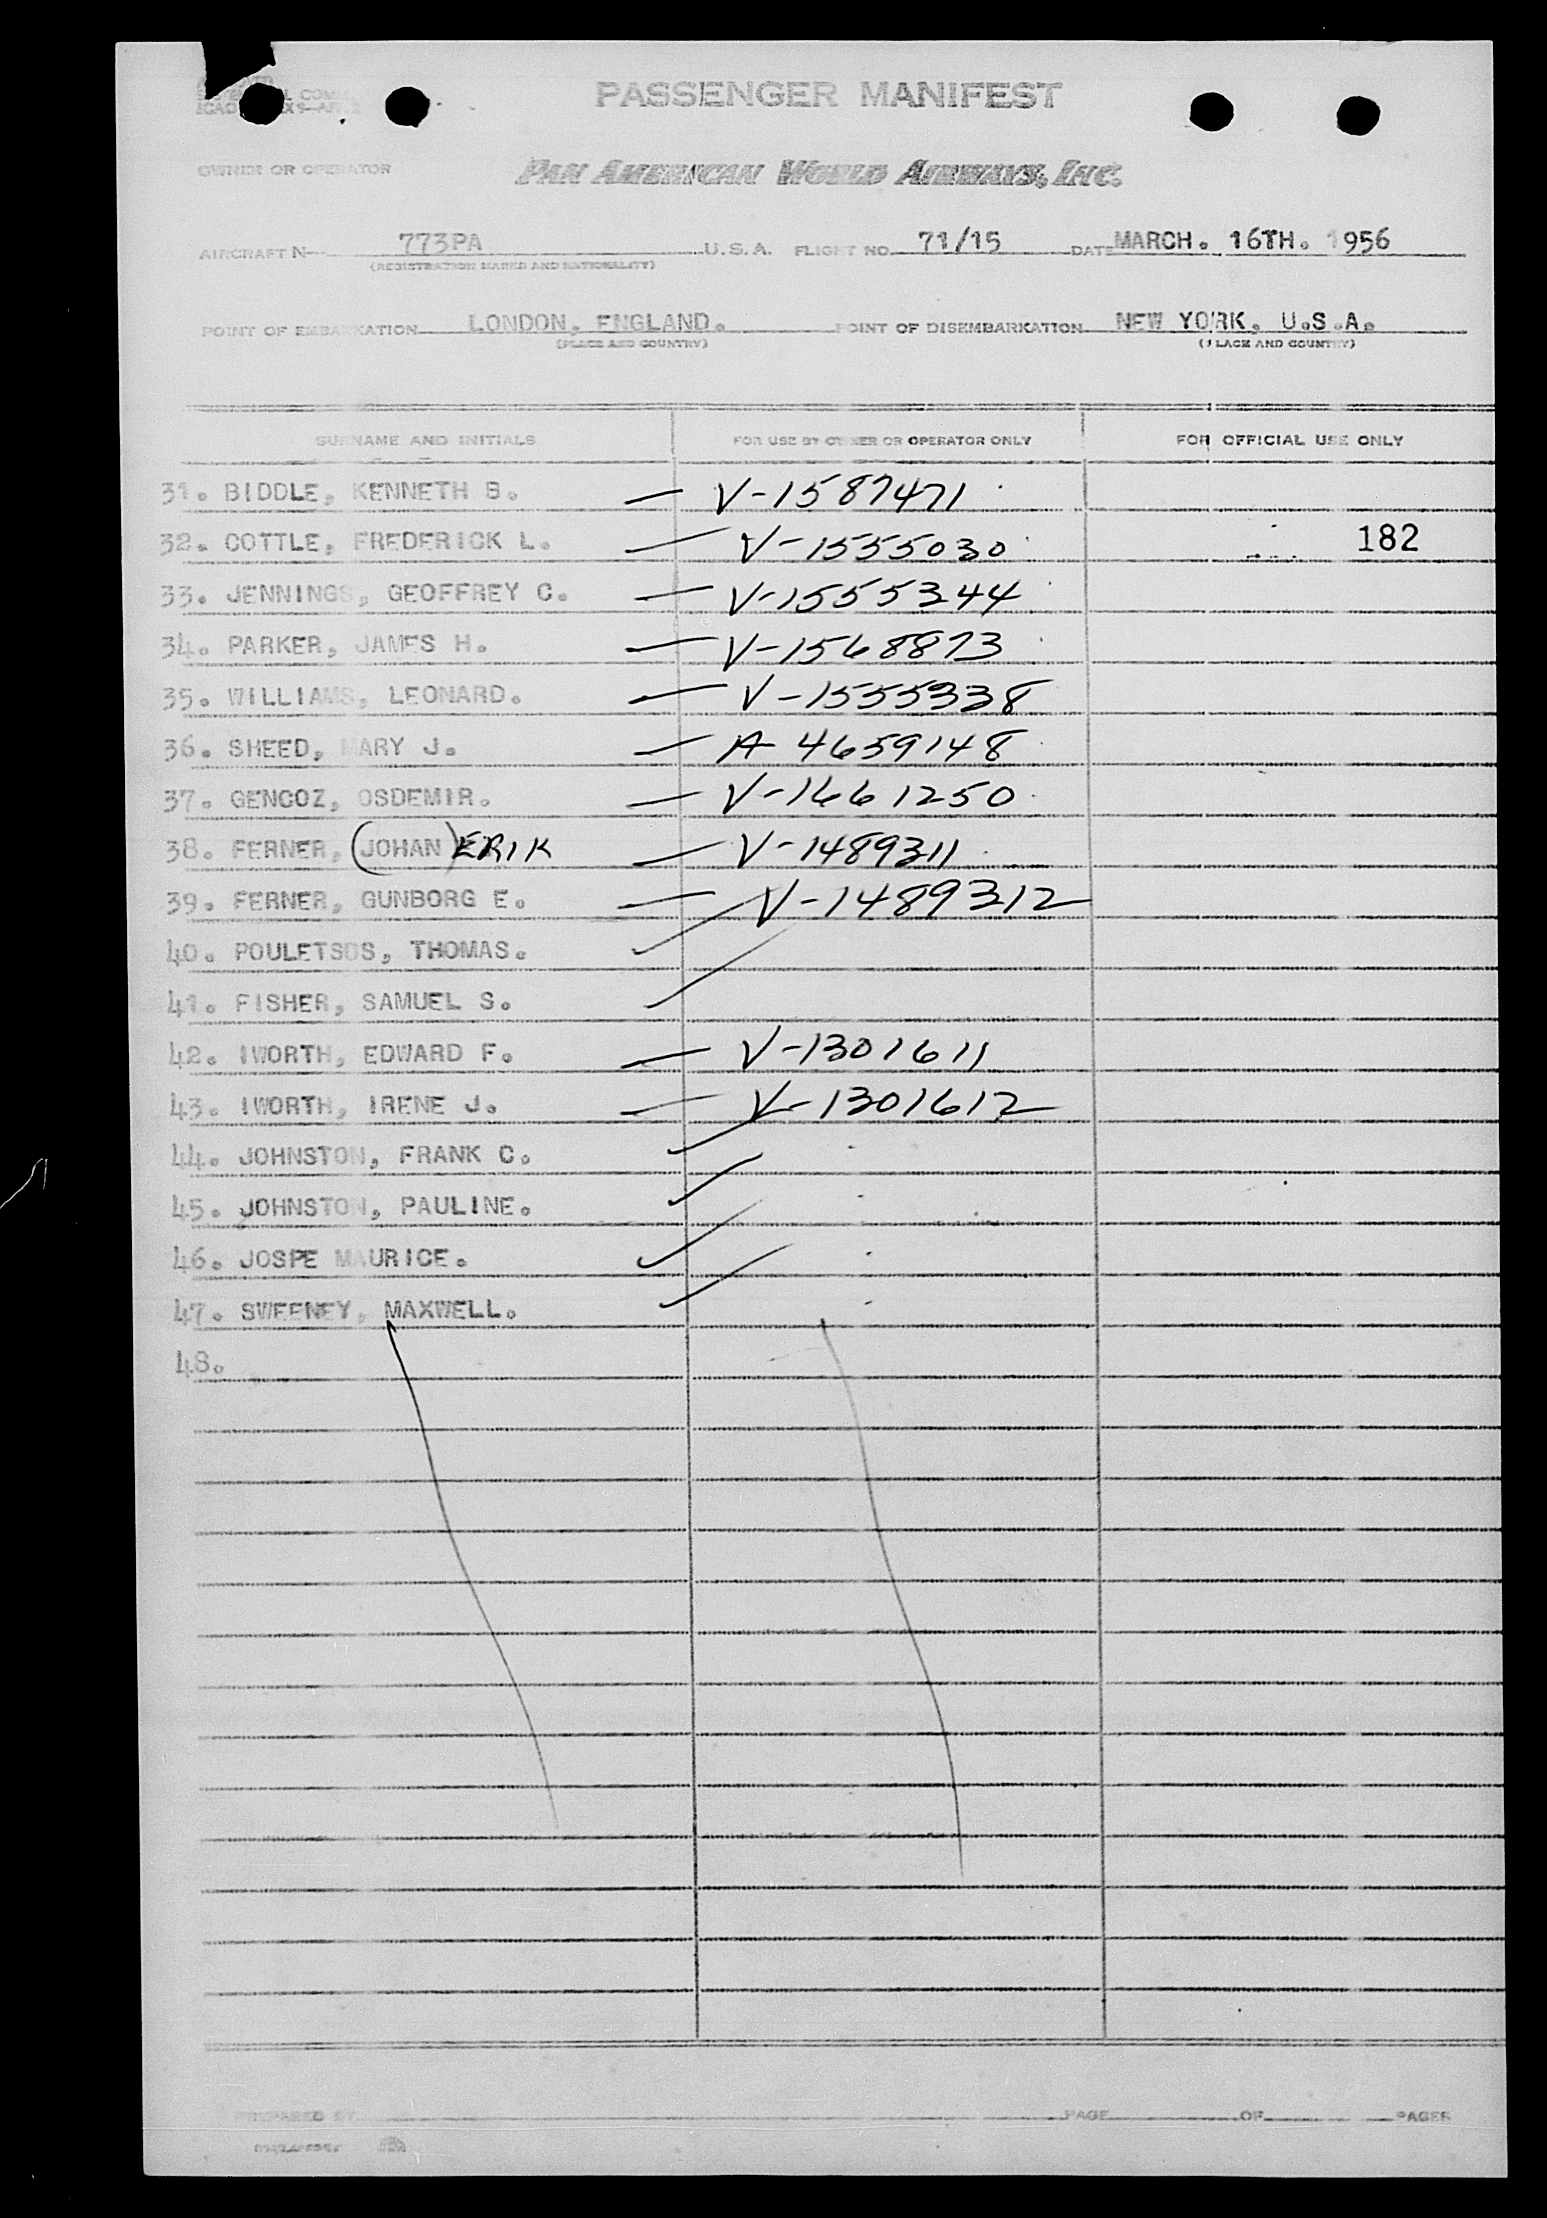 PASSENGER MANIFEST
OWNER OR OPERATOR PAN AMERICAN WORLD AIRWAYS, INC.
AIRCRAFT N 773PA U.S.A. FLIGHT NO. 71/15 DATE MARCH. 16TH. 1956
(REGISTRATION MARKS AND NATIONALITY)
POINT OF EMBARKATION LONDON, ENGLAND. POINT OF DISEMBARKATION NEW YORK, U.S.A.
(PLACE AND COUNTRY) (PLACE AND COUNTRY)
SURNAME AND INITIALS FOR USE BY OWNER OR OPERATOR ONLY FOR OFFICIAL USE ONLY
31. BIDDLE, KENNETH B. — V-1587471
32. COTTLE, FREDERICK L. — V-1555030 182
33. JENNINGS, GEOFFREY C. — V-1555344
34. PARKER, JAMES H. — V-1568873
35. WILLIAMS, LEONARD. — V-1555338
36. SHEED, MARY J. — A-4659148
37. GENCOZ, OSDEMIR. — V-1661250
38. FERNER, (JOHAN) ERIK — V-1489311
39. FERNER, GUNBORG E. — V-1489312
40. POULETSOS, THOMAS. ✓
41. FISHER, SAMUEL S. ✓
42. IWORTH, EDWARD F. — V-1301611
43. IWORTH, IRENE J. — V-1301612
44. JOHNSTON, FRANK C. ✓
45. JOHNSTON, PAULINE. ✓
46. JOSPE MAURICE. ✓
47. SWEENEY, MAXWELL. ✓
48.
PREPARED BY PAGE OF PAGES